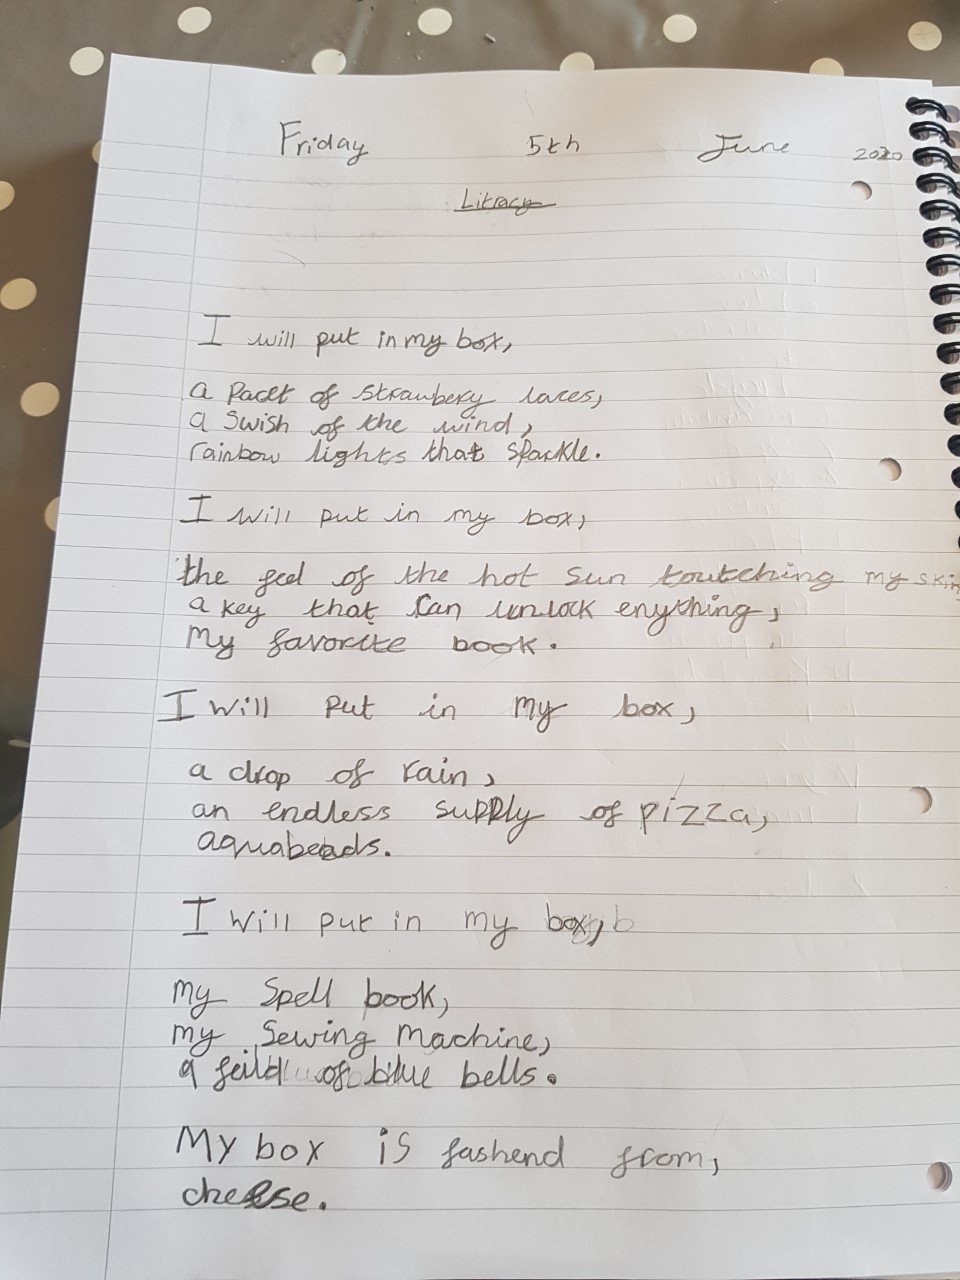 Friday 5th June 2020
Litracy
I will put in my box,
a Pacet of strawbery laces,
a Swish of the wind,
rainbow lights that sparkle.
I will put in my box,
the feel of the hot sun toutching my skin
a key that can unlock enything,
My favorite book.
I will put in my box,
a drop of rain,
an endless supply of pizza,
aquabeads.
I will put in my box,
my Spell book,
my Sewing Machine,
a feild of blue bells.
My box is fashend from,
cheese.